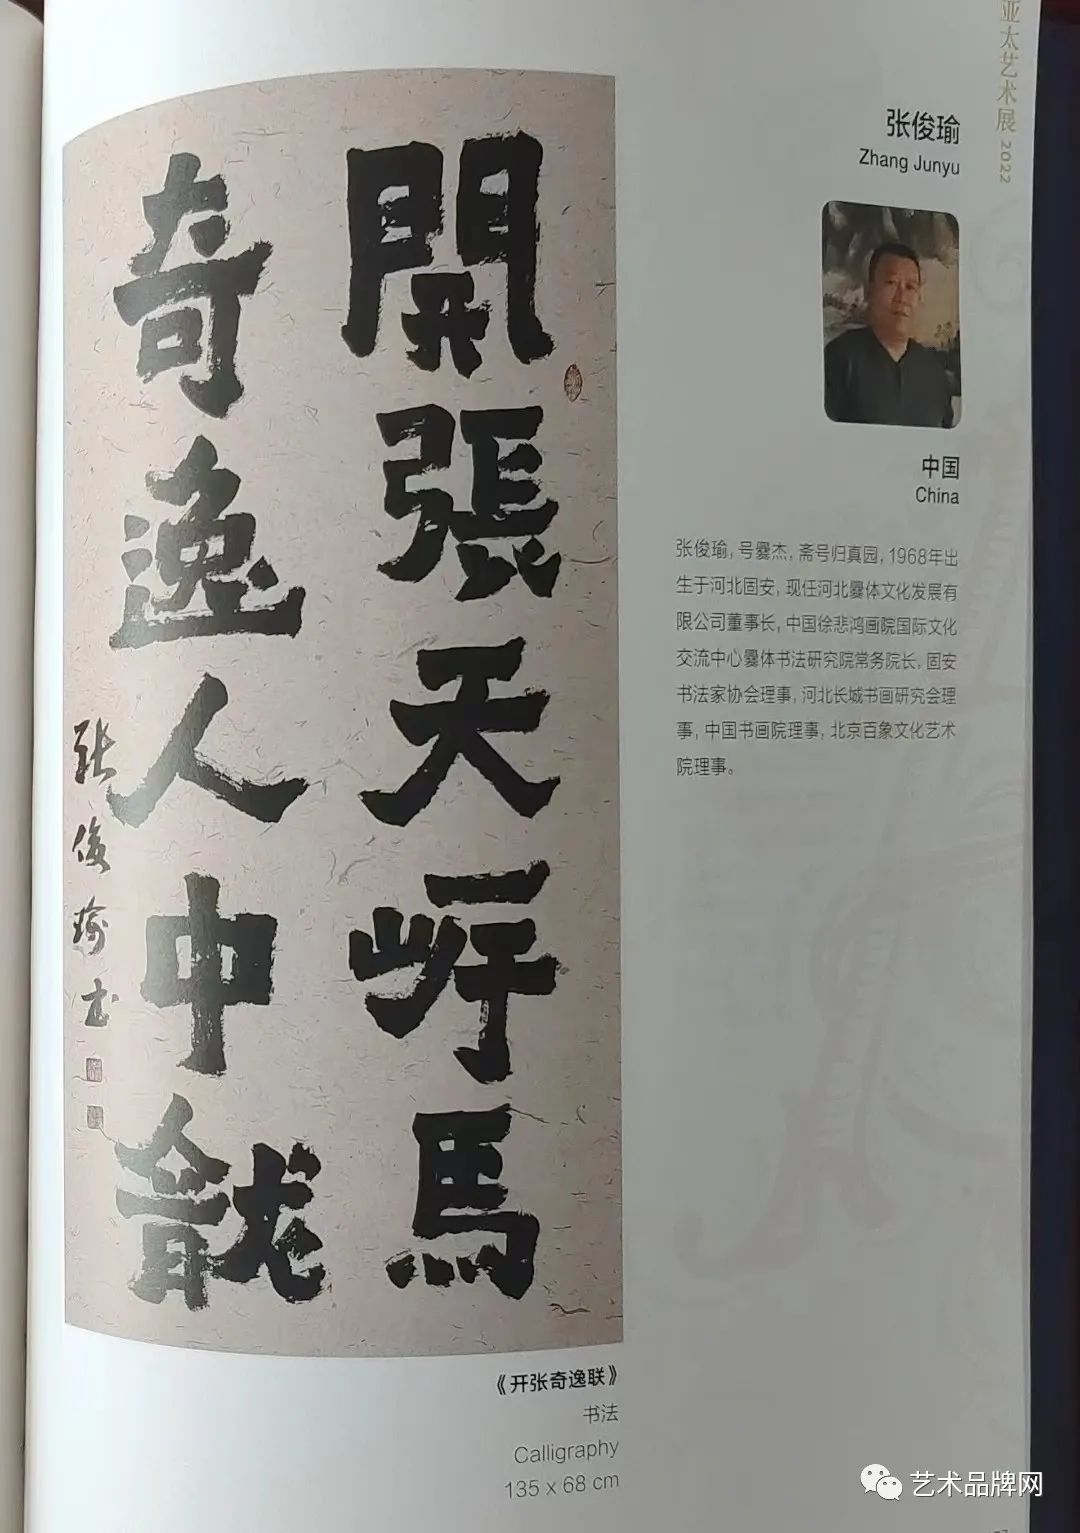 亚太艺术展 2022
張俊瑜書
開張天岸馬
奇逸人中龍
张俊瑜
Zhang Junyu
中国
China
张俊瑜, 号爨杰, 斋号归真园, 1968年出
生于河北固安, 现任河北爨体文化发展有
限公司董事长, 中国徐悲鸿画院国际文化
交流中心爨体书法研究院常务院长, 固安
书法家协会理事, 河北长城书画研究会理
事, 中国书画院理事, 北京百象文化艺术
院理事。
《开张奇逸联》
书法
Calligraphy
135 x 68 cm
艺术品牌网